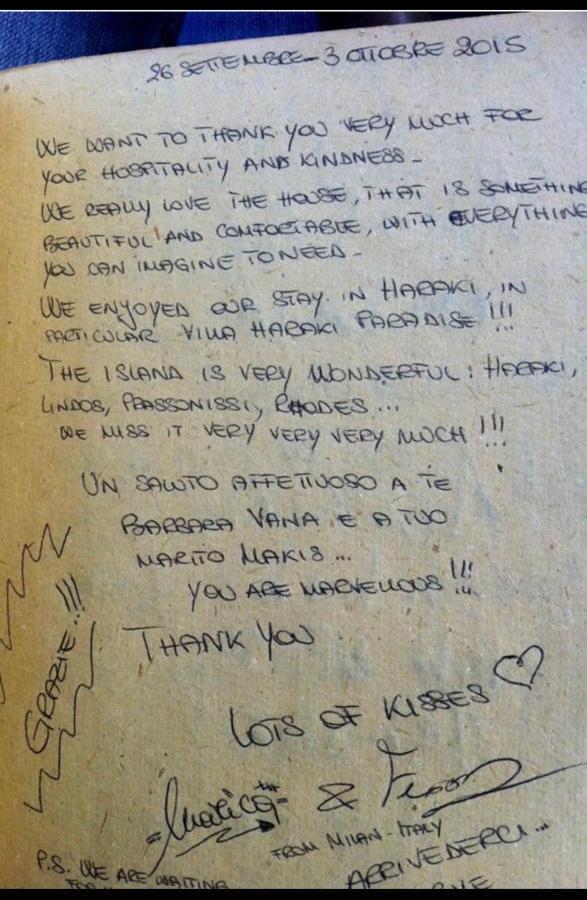 26 SETTEMBRE - 3 OTTOBRE 2015
WE WANT TO THANK YOU VERY MUCH FOR
YOUR HOSPITALITY AND KINDNESS -
WE REALLY LOVE THE HOUSE, THAT IS SOMETHING
BEAUTIFUL AND COMFORTABLE, WITH EVERYTHING
YOU CAN IMAGINE TO NEED -
WE ENJOYED OUR STAY IN HARAKI, IN
PARTICULAR VILLA HARAKI PARADISE !!!
THE ISLAND IS VERY WONDERFUL: HARAKI,
LINDOS, PRASSONISSI, RHODES...
WE MISS IT VERY VERY VERY MUCH !!!
UN SALUTO AFFETTUOSO A TE
BARBARA VANA E A TUO
MARITO MAKIS...
YOU ARE MARVELLOUS !!!
THANK YOU
GRAZIE...!!!
LOTS OF KISSES
&
FROM MILAN - ITALY
ARRIVEDERCI...
P.S. WE ARE WAITING
FOR